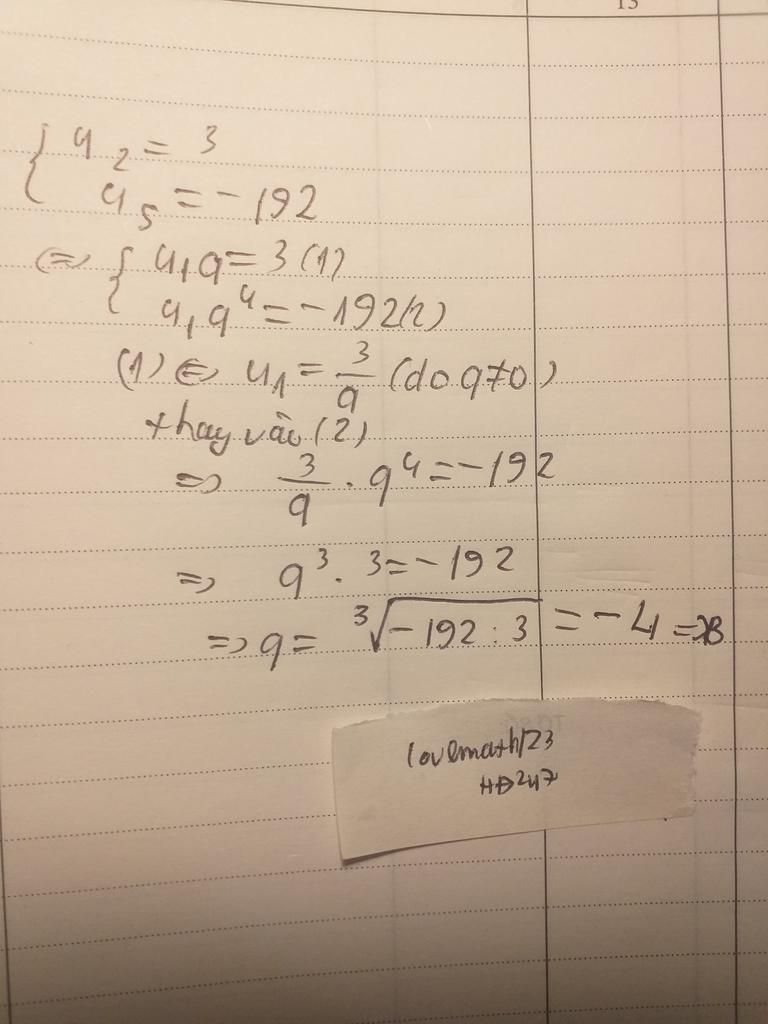 13
{ u₂ = 3
u₅ = -192
⇔ { u₁q = 3 (1)
u₁q⁴ = -192(2)
(1) ⇔ u₁ = 3/q (do q≠0)
thay vào (2)
=> 3/q . q⁴ = -192
=> q³. 3 = -192
=> q = ∛(-192 : 3) = -4 => B
lovemath123
HD247